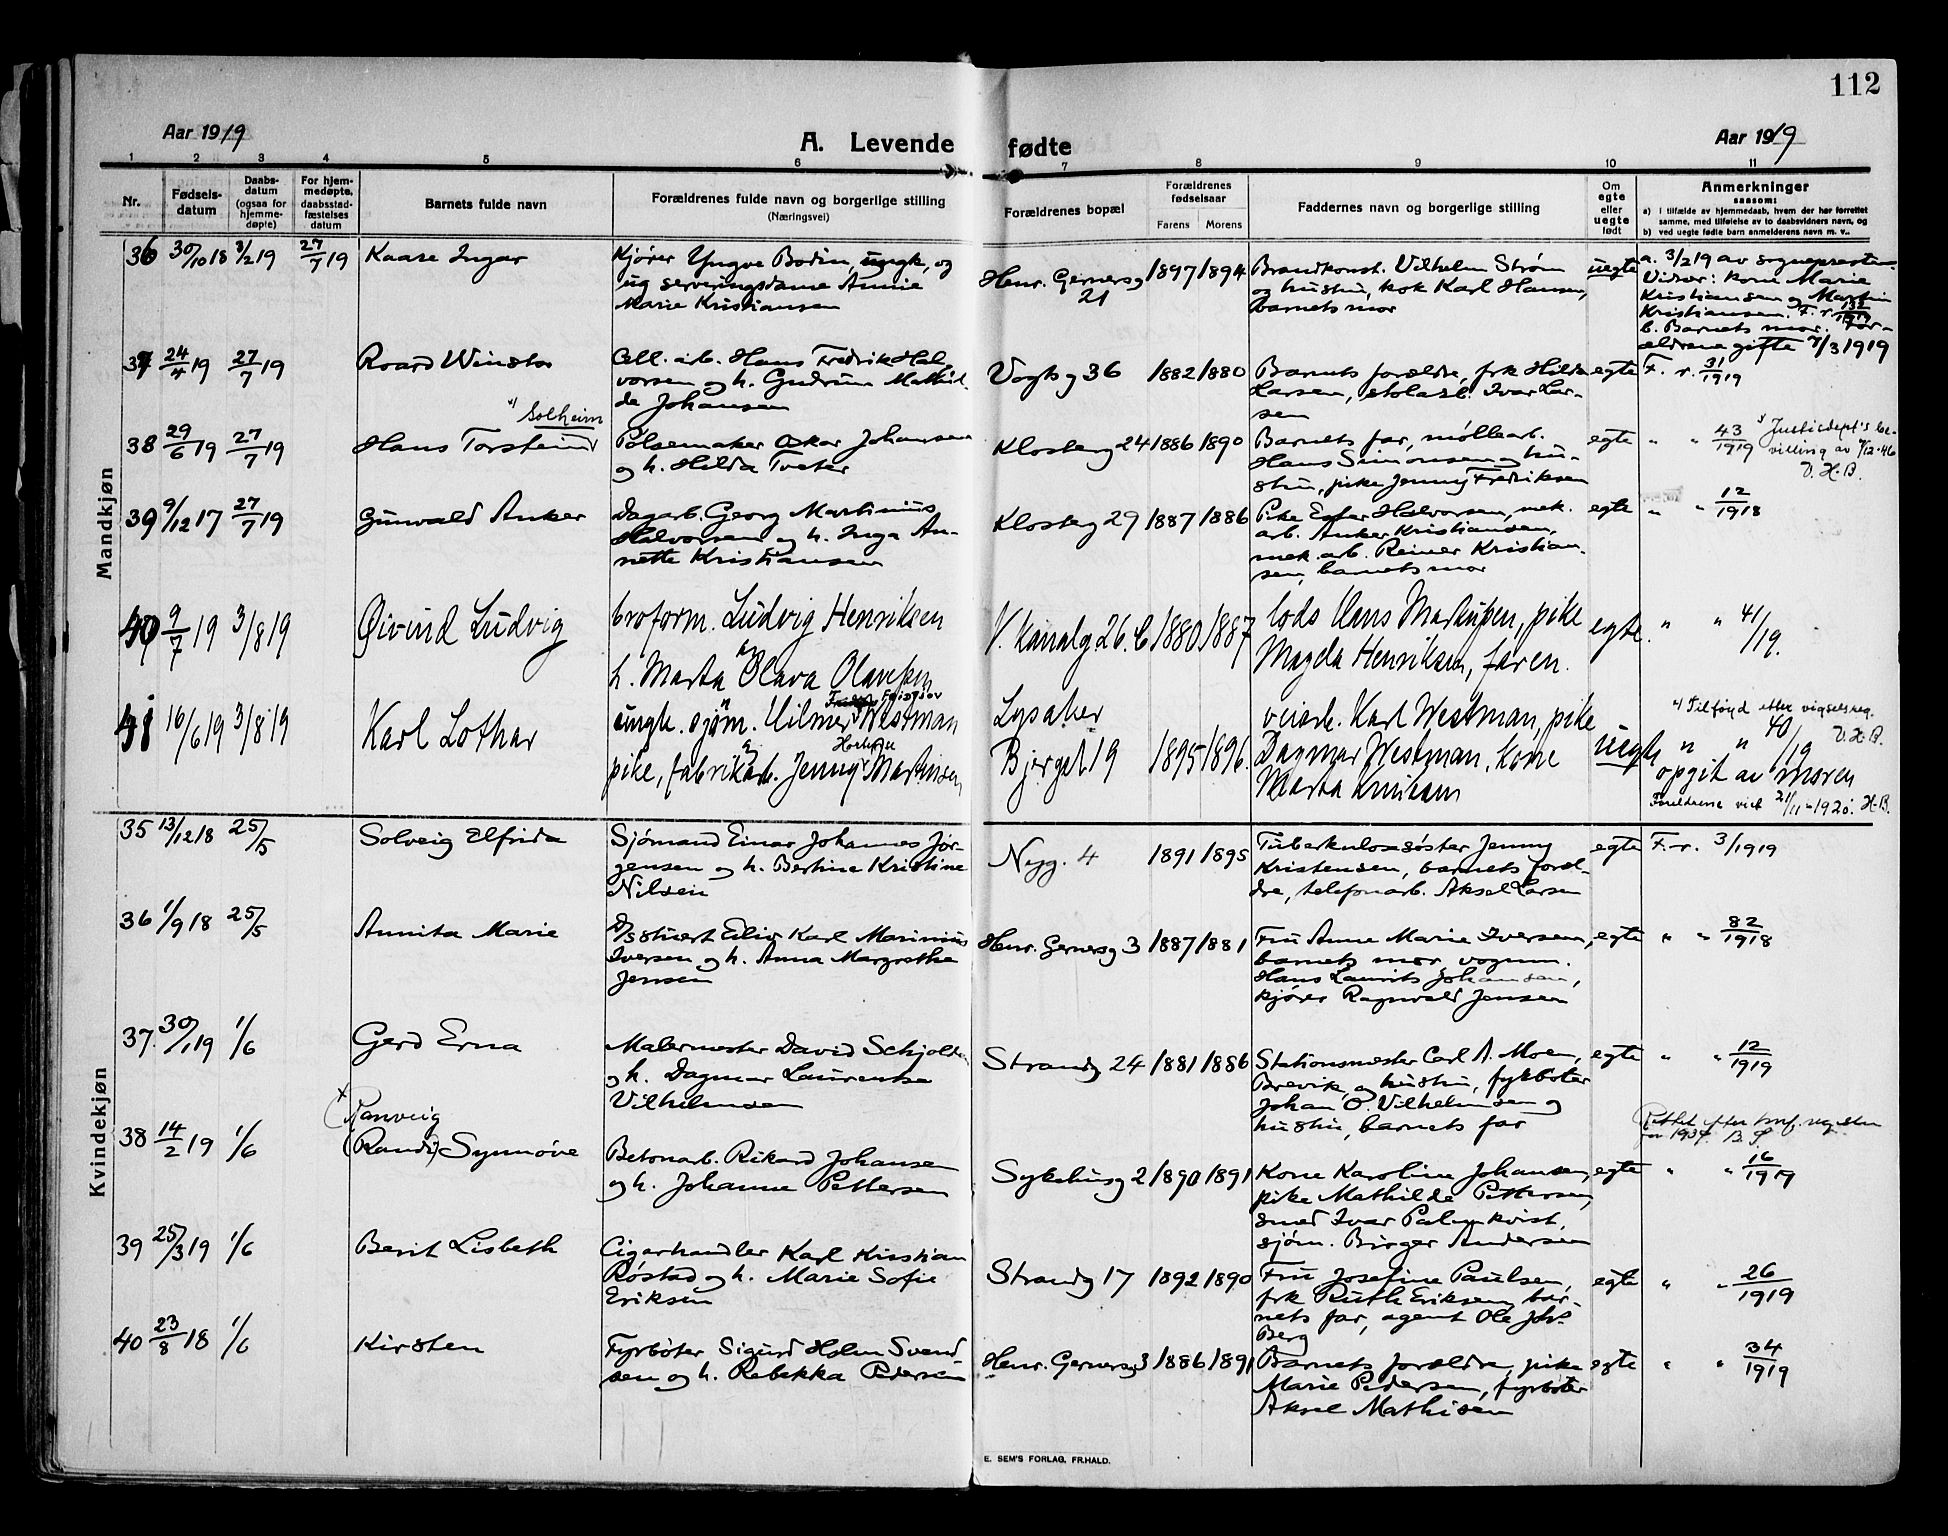 112
Aar 1919
A. Levende fødte
Aar 1919
1 2 3 4 5 6 7 8 9 10 11
Nr.
Fødsels-
datum
Daabs-
datum
(ogsaa for
hjemme-
døpte)
For hjem-
medøpte,
daabsstad-
fæstelses
datum
Barnets fulde navn
Forældrenes fulde navn og borgerlige stilling
(Næringsvei)
Forældrenes bopæl
Forældrenes
fødselsaar
Farens Morens
Faddernes navn og borgerlige stilling
Om
egte
eller
uegte
født
Anmerkninger
saasom:
a) I tilfælde av hjemmedaab, hvem der har forrettet
samme, med tilføielse av to daabsvidners navn, og
b) ved uegte fødte barn anmelderens navn m. v..
Mandkjøn
36 30/10 18 3/2 19 27/7 19 Kaare Ingar
Kjører Yngve Bodin, ungk, og
ug serveringsdame Annie
Marie Kristiansen
Henr. Gernersg
21
1897 1894
Brandkonst. Vilhelm Strøm
og hustru, kok Karl Hansen,
barnets mor
uegte
a. 3/2 19 av sognepresten
Vidner: kone Marie
Kristiansen og Martin
Kristiansen. F. r. 133/1919
b. Barnets mor. For-
ældrene gifte 7/3 1919
37 24/4 19 27/7 19 Roard Winston
Cell. arb. Hans Fredrik Hal-
vorsen og h. Gudrun Mathil-
de Johansen
Vogtsg 36 1882 1880
Barnets forældre, frk Hilda
Larsen, Ivar Lar-
sen
egte F. r. 31/1919
38 29/6 19 27/7 19 Hans Torstein
Solheim
Pølsemaker Oskar Johansen
og h. Hilda Tveter
Klosterg 24 1886 1890
Barnets far, møllearb.
Hans Simonsen og hu-
stru, pike Jenny Fredriksen
egte " " 43/1919
Justisdept's be-
villing av 7/12-46
39 9/12 17 27/7 19 Gunvald Anker
Dagarb. Georg Martinius
Halvorsen og h. Inga An-
nette Kristiansen
Klosterg 29 1887 1886
Pike Ester Halvorsen, mek.
arb. Anker Kristiansen,
mek. arb. Reiner Kristian-
sen, barnets mor
egte " " 12/1918
40 9/7 19 3/8 19 Øivind Ludvig
broform. Ludvig Henriksen
h. Marta Olava Olavesen
V. Kanalg 26. b 1880 1887
lods Hans Markussen, pike
Magda Henriksen, faren.
egte. " " 41/19.
41 16/6 19 3/8 19 Karl Lothar
ungk. sjøm. Hilmer Westman
pike, fabrikarb. Jenny Martinsen
Lysaker
Bjerget. 19 1895 1896.
veiarb. Karl Westman, pike
Dagmar Westman, kone
Marta Knudsen
uegte " " 40/19
Tilføyd etter vigselsreg.
opgit av moren
Foreldrene viet 21/11-1920. H.B.
Kvindekjøn
35 13/12 18 25/5 Solveig Elfrida
Sjømand Einar Johannes Jør-
gensen og h. Bertine Kristine
Nilsen
Nyg. 4 1891 1895
Tuberkulosesøster Jenny
Kristensen, barnets foræl-
dre, telefonarb. Aksel Larsen
egte F. r. 3/1919
36 1/9 18 25/5 Annita Marie
D/Sstuert Eiliv Karl Marinius
Iversen og h. Anna Margrethe
Jensen
Henr. Gernersg 3 1887 1881
Fru Anne Marie Iversen,
barnets mor, vognm.
Hans Laurits Johansen,
kjører Ragnvald Jensen
egte " " 82/1918
37 30/1 19 1/6 Gerd Erna
Malermester David Schjoldt
og h. Dagmar Laurentse
Vilhelmsen
Strandg 24 1881 1886
Stationsmester Carl A. Moen,
Brevik, og hustru, fyrbøter
Johan O. Vilhelmsen og
hustru, barnets far
egte " " 12/1919
38 14/2 19 1/6
× Ranveig
(Randi) Synnøve
Betonarb. Rikard Johansen
og h. Johanne Pettersen
Sykehusg 2 1890 1891
Kone Karoline Johansen,
pike Mathilde Pettersen,
smed Ivar Palmkvist,
sjøm. Birger Andersen
egte " " 16/1919
Rettet efter
39 25/3 19 1/6 Berit Lisbeth
Cigarhandler Karl Kristian
Røstad og h. Marie Sofie
Eriksen
Strandg 17 1892 1890
Fru Josefine Paulsen,
frk Ruth Eriksen, bar-
nets far, agent Ole Johs.
Berg
egte " " 26/1919
40 23/8 18 1/6 Kirsten
Fyrbøter Sigurd Holm Svend-
sen og h. Rebekka Pedersen
Henr. Gernersg 3 1886 1891
Barnets forældre, pike
Marie Pedersen, fyrbøter
Aksel Mathisen
egte " " 34/1919
E. SEM'S FORLAG, FR.HALD.